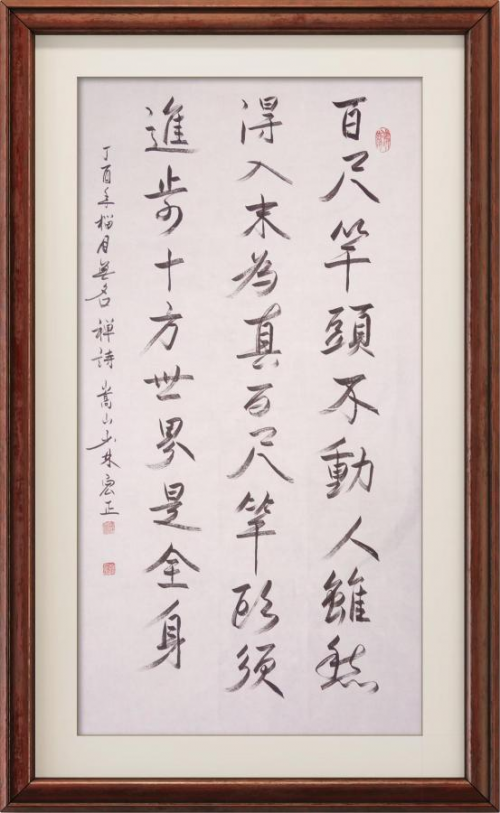 百尺竿頭不動人雖然
得入未為真百尺竿頭須
進步十方世界是全身
丁酉年榴月無名禪詩嵩山少林正